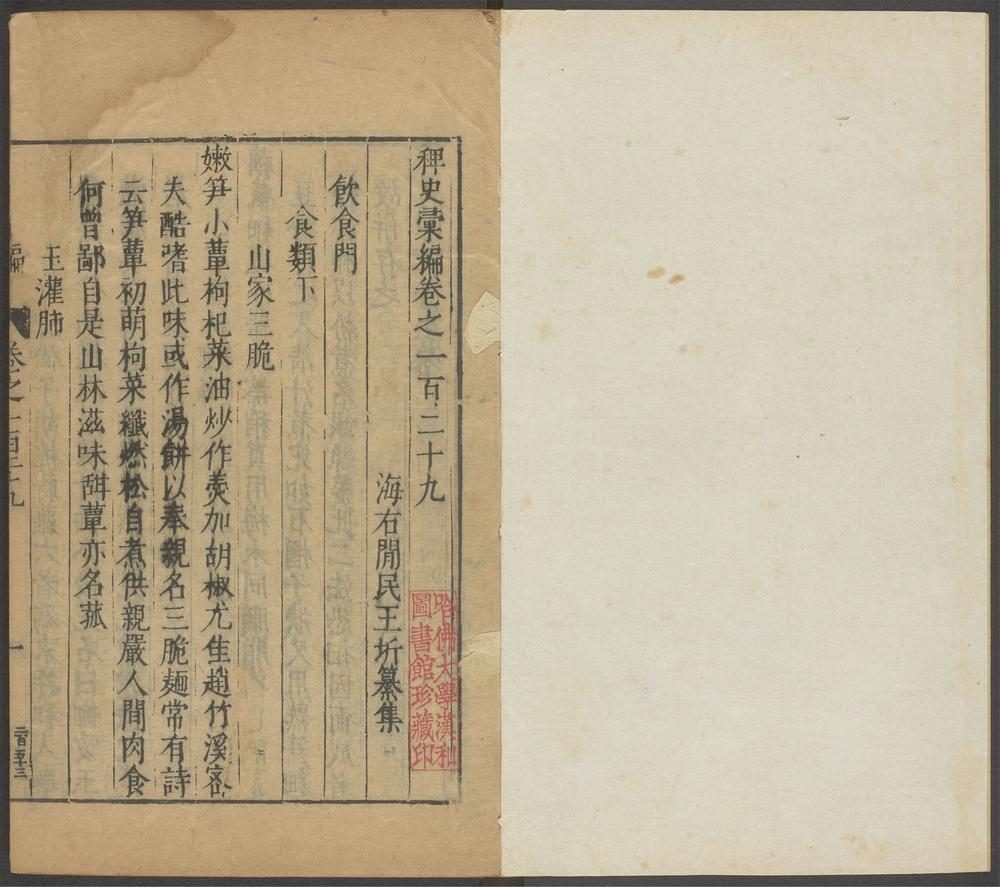 稗史彙編卷之一百二十九
海右閒民王圻纂集
哈佛大學漢和
圖書館珍藏印
飲食門
食類下
山家三脆
嫩笋小蕈枸杞菜油炒作羮加胡椒尤佳趙竹溪密
夫酷嗜此味或作湯餅以奉親名三脆麵常有詩
云笋蕈初萌枸菜纖燃松自煮供親嚴人間肉食
何曾鄙自是山林滋味甜蕈亦名菰
玉灌肺
編
卷之一百二十九
一